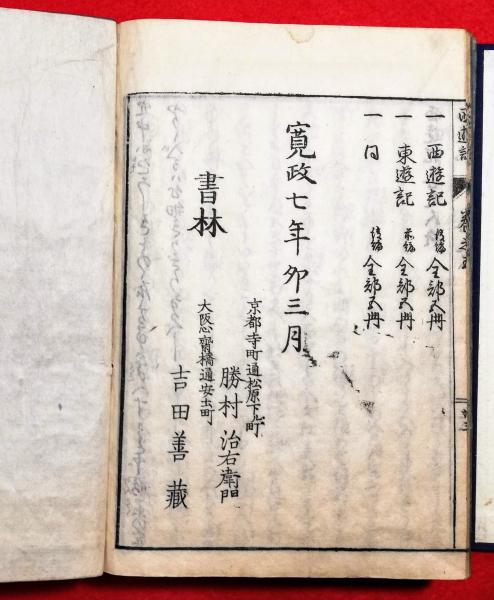 一 西遊記 後編 全部五冊
一 東遊記 前編 全部五冊
一 同 後編 全部五冊
寛政七年卯三月
書林
京都寺町通松原下ル町
勝村治右衛門
大阪心齋橋通安土町
吉田善藏
西遊記
巻之五